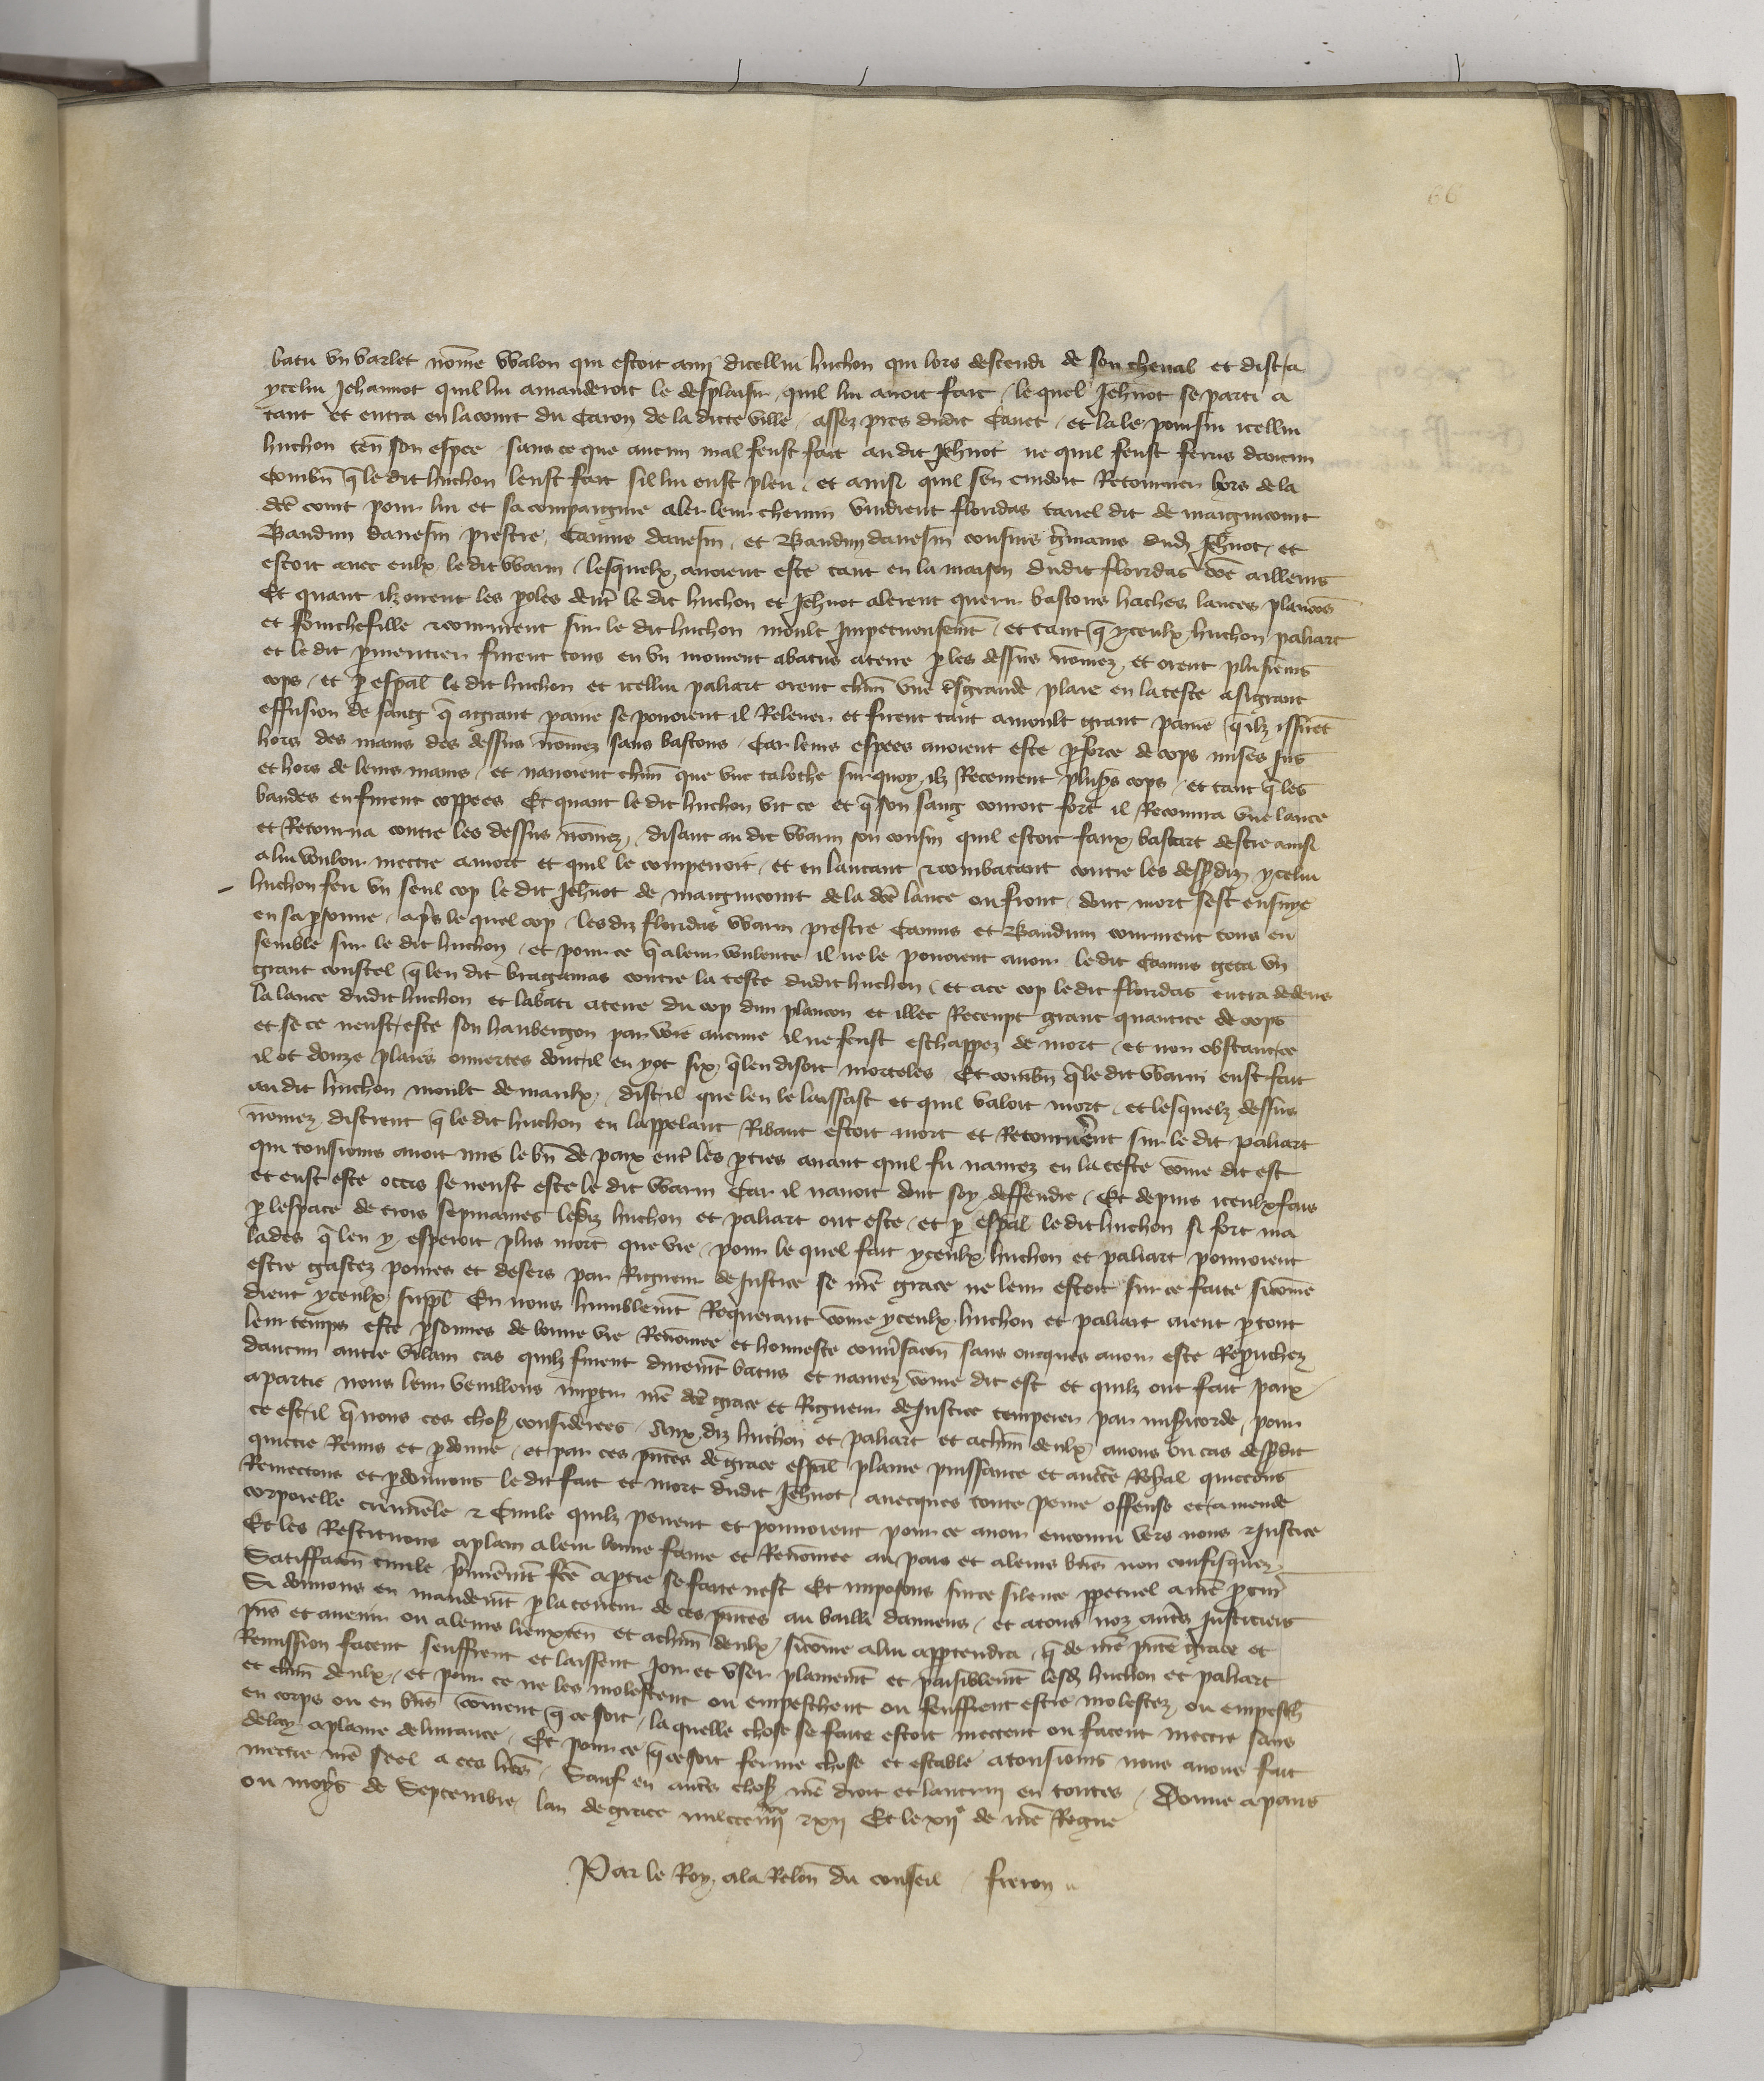 66
batu un varlet nōme Walon qui estoit amy dicellui huchon qui lors descendi de son cheval et dist a
ycelui Jehannot quil lui amanderoit le desplaisir quil lui avoit fait / le quel Jehnot se parti a
tant et entra en la court du Caron de la dicte ville / assez pres dudit Cavet / et la le poursui icellui
huchon ten̄ son espee sans ce que aucun mal feust fait au dit Jehnot ne quil feust ferus daucun
Combn̄ q̄ le dit huchon leust fait sil lui eust pleu / et ainsi quil sen cuidoit Retourner hors de la
dcē court pour lui et sa compaignie aler leur chemin vindrent floridas tavel dit de maignicourt
Baudin davesin prestre, Camus davesin, et Baudin davesin cousins gr̄mains dud Jehnot / et
estoit avec eulx le dit Warin / lesquelx avoient este tant en la maison dudit floridas cōe ailleurs
Et quant ilz orent les poles dentr̄ le dit huchon et Jehnot alerent querir bastons haches lances plancons
et fourchefille & coururent sur le dit huchon moult Impetueusemt / et tant q̄ yceulx huchon paliart
et le dit p̄mentier furent tous en un moment abatus a terre p̄ les dessus nōmez, et orent plusieurs
cops / et p̄ esp̄al le dit huchon et icellui paliart orent chūn une tr̄sgrande plaie en la teste a si grant
effusion de sang q̄ a grant paine se povoient il Relever et firent tant a moult grant paine q̄ ilz issirēt
hors des mains des dessus nōmez sans bastons / Car leurs espees avoient este p̄ force de cops mises jus
et hors de leurs mains / et navoient chūn que une taloche sur quoy ilz Receurent plus̄s cops / et tant q̄ les
bandes en furent coppees Et quant le dit huchon vit ce et q̄ son sang couroit fort il Recouvra une lance
et Retourna contre les dessus nōmez, disant au dit Warin son cousin quil estoit faux bastart destre ainsi
a lui vouloir mectre a mort et quil le comperroit / et en lancant & combatant contre les dessdiz ycelui
huchon feri un seul cop le dit Jehnot de maignicourt de la dcē lance ou front / dont mort sest ensuye
en sa p̄sonne / ap̄s le quel cop / lesdiz floridas Warin prestre Camus et Baudin coururent tous en
semble sur le dit huchon / et pour ce q̄ a leur voulente il ne le povoient avoir le dit Camus geta un
grant coustel q̄ len dit bragamas contre la teste dudit huchon / et a ce cop le dit floridas entra dedens
la lance dudit huchon et labati a terre du cop dun plancon et illec Receupt grant quantite de cops
et se ce neust este son haubergon par voie aucune il ne feust eschappez de mort / et non obstant ce
il ot douze plaies ouvertes dont il en y ot six q̄ len disoit morteles Et combn̄ q̄ le dit Warin eust fait
au dit huchon moult de maulx, dist il que len le laissast et quil valoit mort / et lesquelz dessus
nōmez distrent q̄ le dit huchon en lappelant Ribaut estoit mort et Retournērent sur le dit paliart
qui tousjours avoit mis le bn̄ de paix entr̄ les p̄ties avant quil fu navrez en la teste cōme dit est
et eust este occis se neust este le dit Warin Car il navoit dont soy deffendre / Et depuis iceulx fais
p̄ lespace de trois sepmaines lesdiz huchon et paliart ont este / et p̄ esp̄al le dit huchon si fort ma
lades q̄ len y esperoit plus mort que vie / pour le quel fait yceulx huchon et paliart pourroient
estre gastez povres et desers par Rigueur de Justice se nr̄e grace ne leur estoit sur ce faite sicōme
dient yceulx suppl̄ En nous humblemt Requerant cōme yceulx huchon et paliart aient p̄ tout
leur temps este p̄sonnes de bonne vie Renōmee et honneste conv̄sacōn sans oncques avoir este Reprouchez
daucun autre vilain cas quilz furent durement batus et navrez cōme dit est et quilz ont fait paix
a partie nous leur vueillons imp̄tir nr̄e dcē grace et Rigueur de Justice temperer par misericorde, pour
ce est il q̄ nous ces chos̄ considerees / Aux diz huchon et paliart et a chūn deulx avons ou cas dess̄dit
quictie Remis et p̄donne / et par ces pn̄tes de grace esp̄al plaine puissance et aucte Royal quictons
Remectons et p̄donnons le dit fait et mort dudit Jehnot, avecques toute peine offense et amende
corporelle crimēle & Civile quilz peuent et pourroient pour ce avoir encouru vers nous & Justice
Et les Restituons a plain a leur bonne fame et Renōmee au pais et a leurs bn̄s non confisquez
Satisfacōn civile p̄mieremt fcē a p̄tie se faite nest Et imposons sur ce silence ppetuel a nr̄e p̄cur̄
Si donnons en mandemt p̄ la teneur de ces pn̄tes au bailli damiens / et a tous noz autr̄s Justiciers
pn̄s et avenir ou a leurs lieuxten̄ et a chūn deulx / sicōme a lui appartendra, q̄ de nr̄e pn̄te grace et
Remission facent seuffrent et laissent Joir et user plainemt et paisiblemt lesd huchon et paliart
et chūn deulx / et pour ce ne les molestent ou empeschent ou seuffrent estre molestez ou empesch̄
en corps ou en bn̄s cōment q̄ ce soit / la quelle chose se faite estoit mectent ou facent mectre sans
delay a plaine delivrance / Et pour ce q̄ ce soit ferme chose et estable a tousjours nous avons fait
mectre nr̄e seel a ces lr̄es / Sauf en autr̄s chos̄ nr̄e droit et lautruy en toutes / Donne a paris
ou moys de Septembre lan de grace mil ccc iiii^xx & xii Et le xii^e de nr̄e Regne
Par le Roy, a la Relōn du conseil / freron